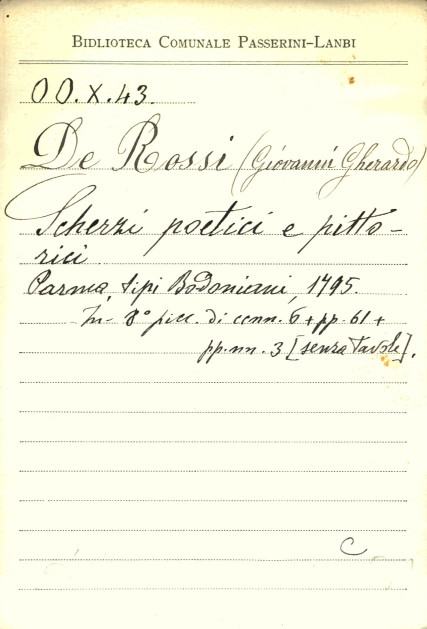 BIDLIOTECA COMUNALE PASSERINI-LANBI
OO.X.43.
De Rossi (Giovanni Gherardo)
Scherzi poetici e pitto-
rici
Parma, tipi Bodoniani, 1795.
In-8° picc. di cc nn. 6 + pp. 61 +
pp. nn. 3 [senza tavole].
C